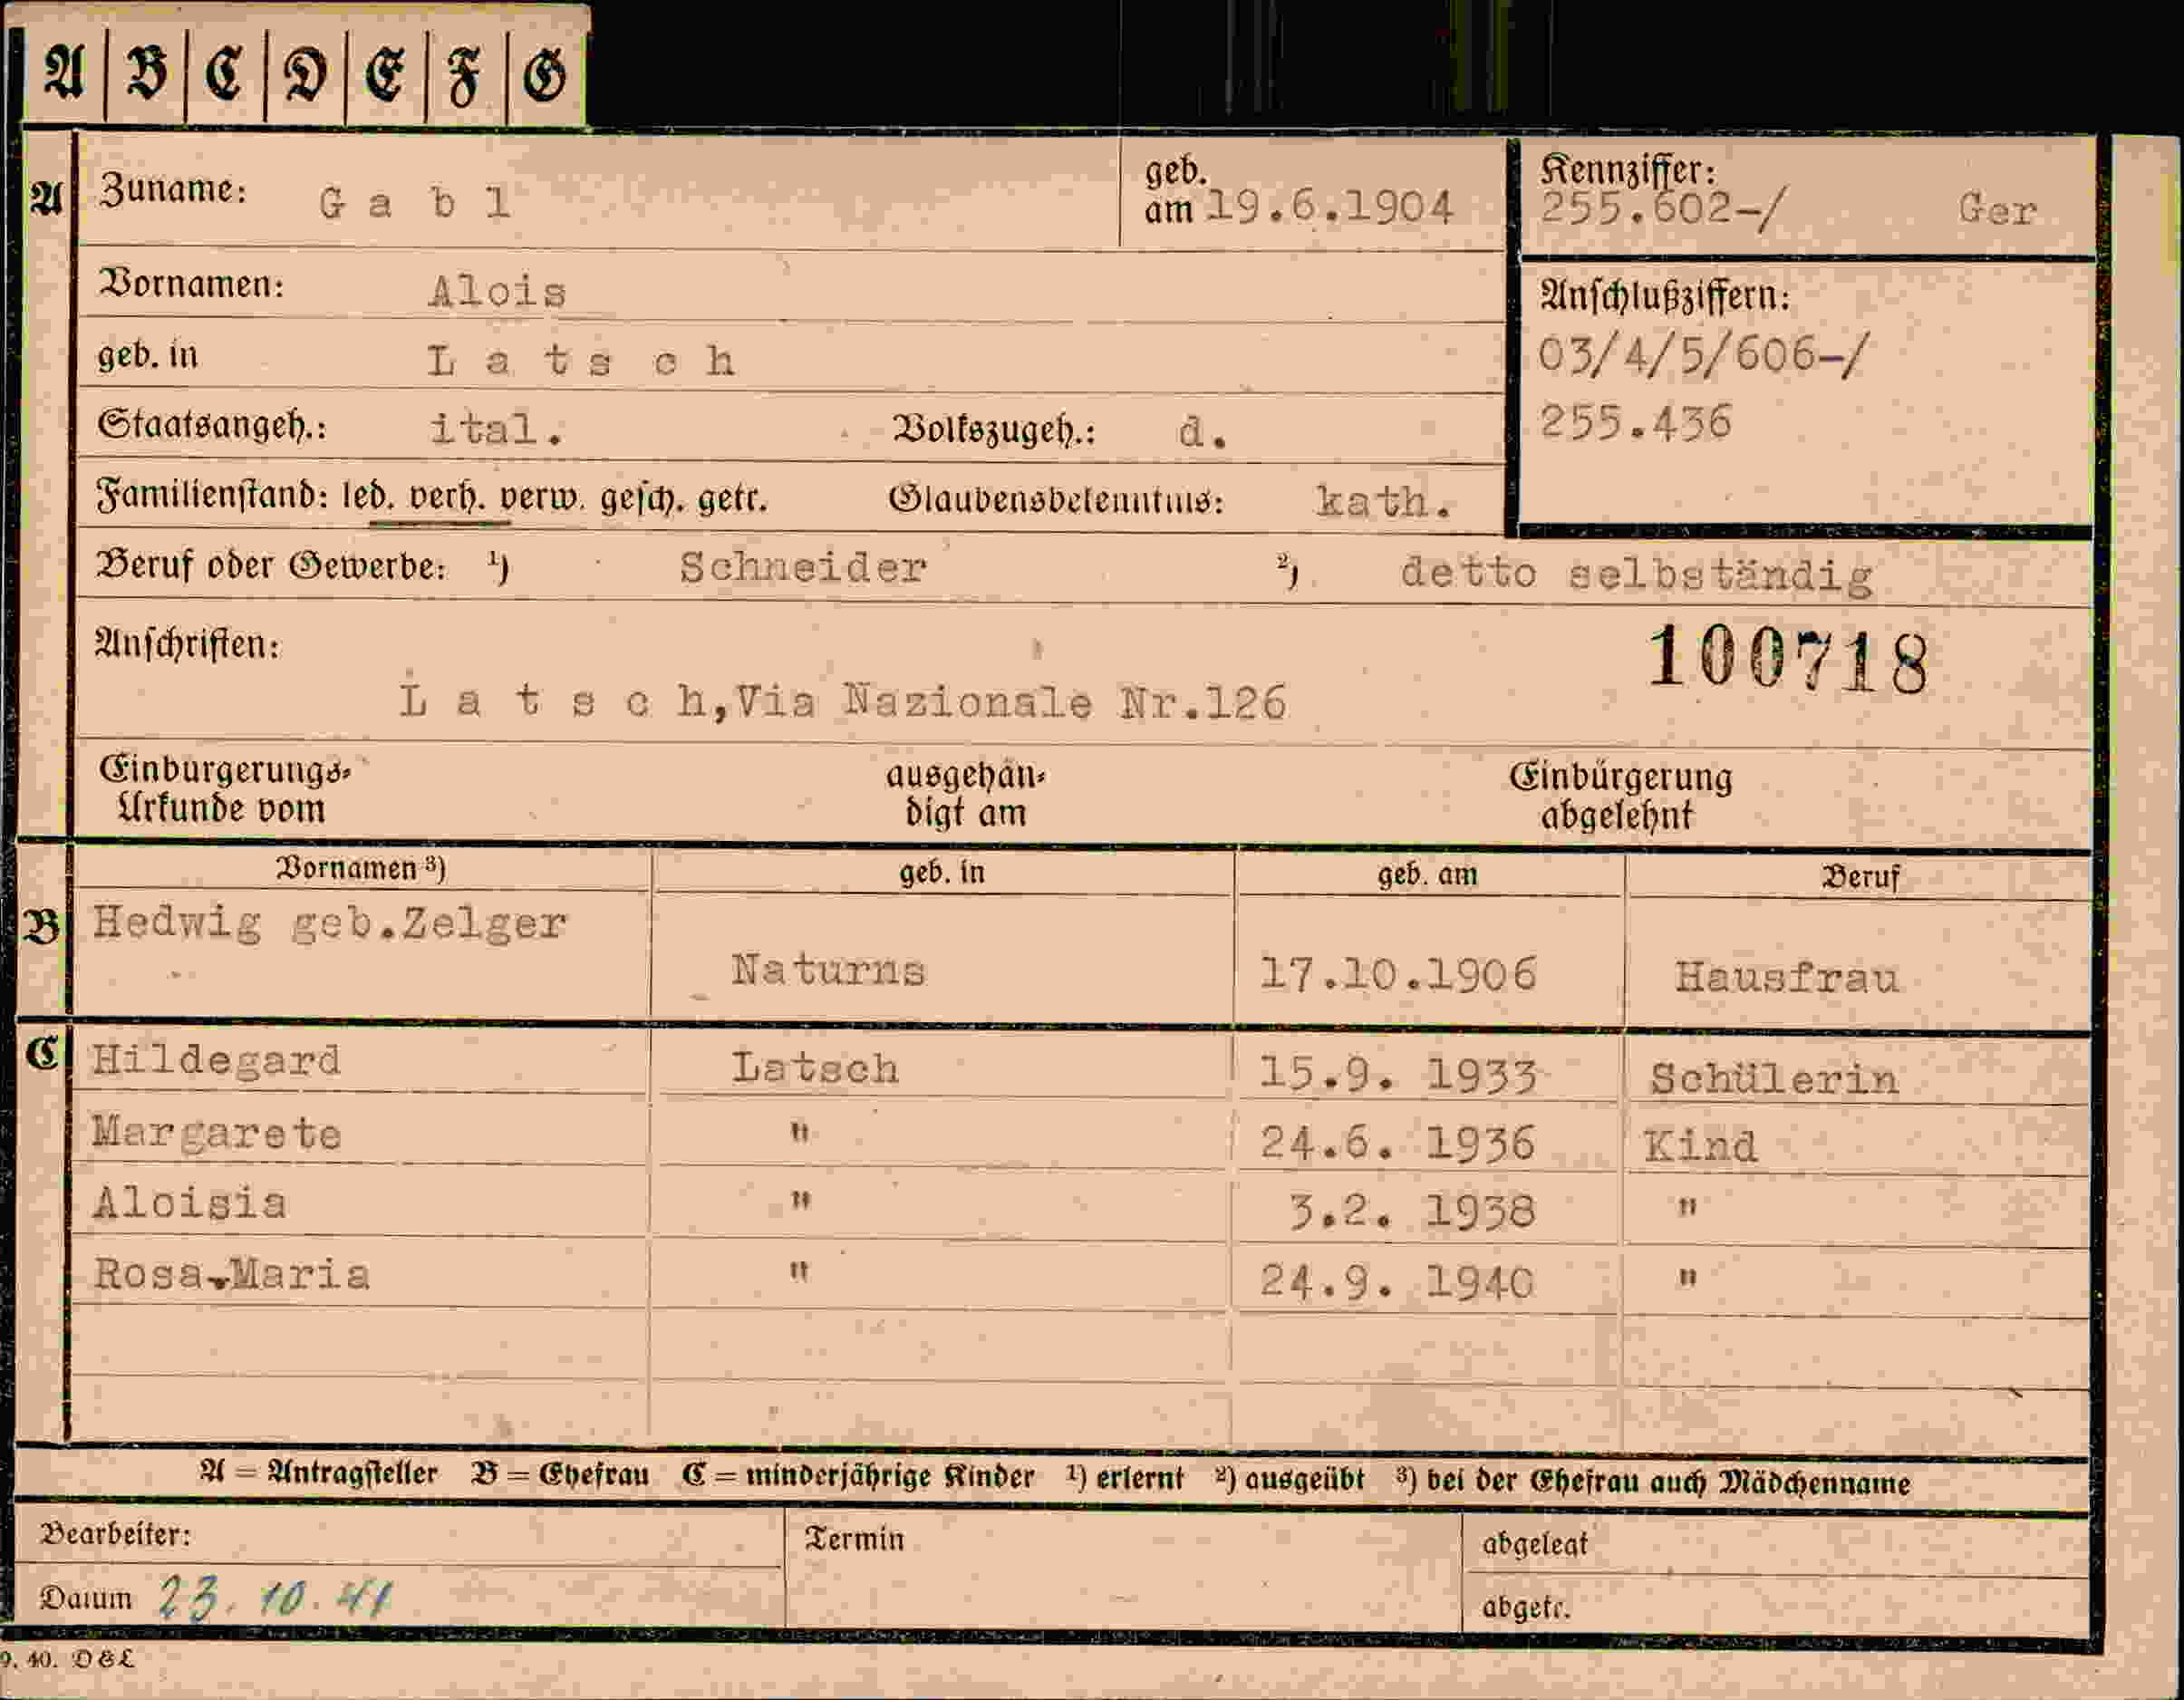 A B C D E F G
A Zuname: G a b l geb. am 19.6.1904 Kennziffer: 255.602-/ Ger
Vornamen: Alois Anschlußziffern:
geb. in L a t s c h 03/4/5/606-/
Staatsangeh.: ital. Volkszugeh.: d. 255.436
Familienstand: led. verh. verw. gesch. getr. Glaubensbekenntnis: kath.
Beruf oder Gewerbe: ¹) Schneider ²) detto selbständig
Anschriften: 100718
L a t s c h,Via Nazionale Nr.126
Einbürgerungs- ausgehän- Einbürgerung
Urkunde vom digt am abgelehnt
Vornamen ³) geb. in geb. am Beruf
B Hedwig geb.Zelger
Naturns 17.10.1906 Hausfrau
C Hildegard Latsch 15.9. 1933 Schülerin
Margarete " 24.6. 1936 Kind
Aloisia " 3.2. 1938 "
Rosa-Maria " 24.9. 1940 "
A = Antragsteller B = Ehefrau C = minderjährige Kinder ¹) erlernt ²) ausgeübt ³) bei der Ehefrau auch Mädchenname
Bearbeiter: Termin abgelegt
Datum 23.10.41 abgetr.
9. 40. D&L